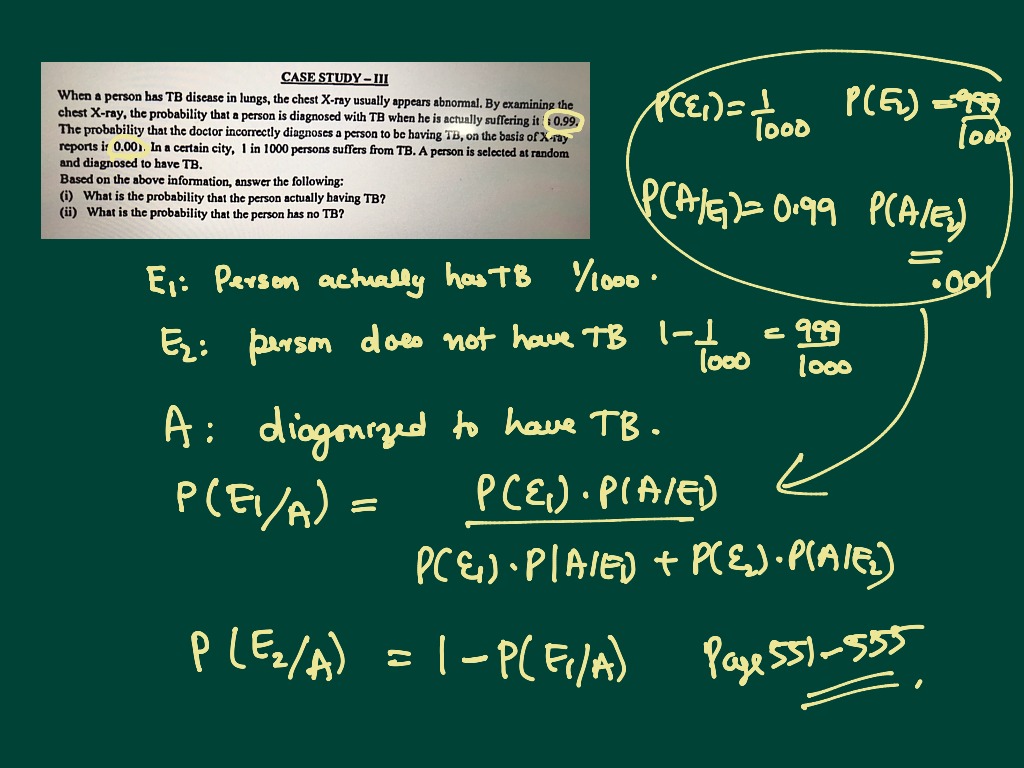 CASE STUDY – III
When a person has TB disease in lungs, the chest X-ray usually appears abnormal. By examining the
chest X-ray, the probability that a person is diagnosed with TB when he is actually suffering it is 0.99.
The probability that the doctor incorrectly diagnoses a person to be having TB, on the basis of X-ray
reports is 0.001. In a certain city, 1 in 1000 persons suffers from TB. A person is selected at random
and diagnosed to have TB.
Based on the above information, answer the following:
(i) What is the probability that the person actually having TB?
(ii) What is the probability that the person has no TB?
P(E₁) = 1/1000 P(E₂) = 999/1000
P(A/E₁) = 0.99 P(A/E₂) = .001
E₁: Person actually has TB 1/1000.
E₂: person does not have TB 1 - 1/1000 = 999/1000
A: diagonized to have TB.
P(E₁/A) = P(E₁) . P(A/E₁)
P(E₁) . P(A/E₁) + P(E₂) . P(A/E₂)
P(E₂/A) = 1 - P(E₁/A) Page 551-555.